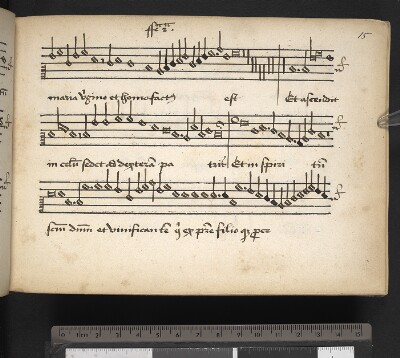 15
maria virgine et homo fact est Et ascendit
in celu sedet ad dexteram pa tris Et in spiri tu
scm dnm et vivificantem q ex patre filio q proce